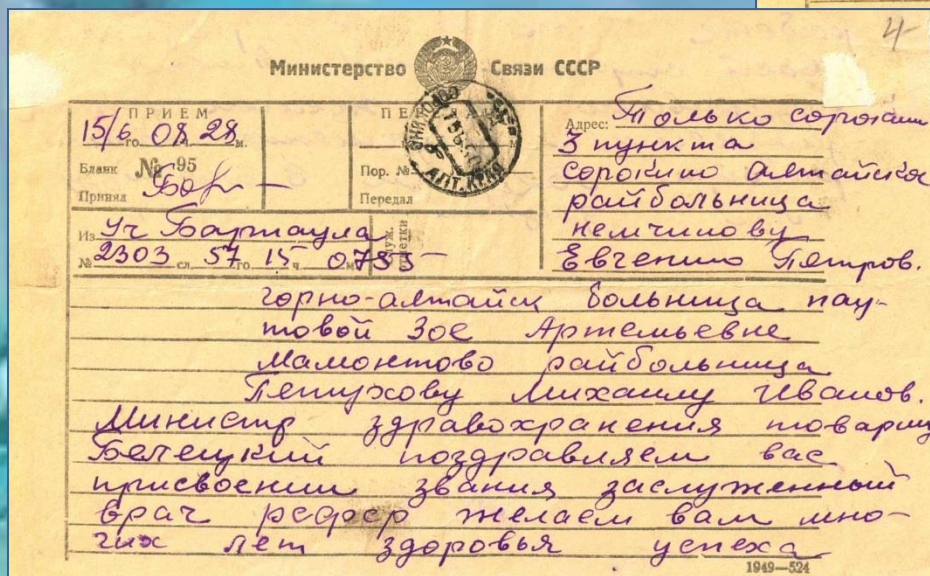 4
Министерство Связи СССР
ПРИЕМ
15/6 го 08 ч. 28 м.
Бланк № 95
Принял
Пор. №
Передал
АЛТ. КРАЯ
Адрес: Только сорокин
3 пункта
сорокино Алтайской
райбольница
немчинову
Евгению Петров.
Из Уч Барнаула
№ 2303 сл. 57 го 15 ч. 0755 м.
горно-алтайск больница пау-
товой Зое Артемьевне
Мамонтово райбольница
Петухову Михаилу Иванов.
Министр здравохранения товарищ
Белецкий поздравляем вас
присвоении звания заслуженный
врач рсфср желаем вам мно-
гих лет здоровья успеха
1949—524